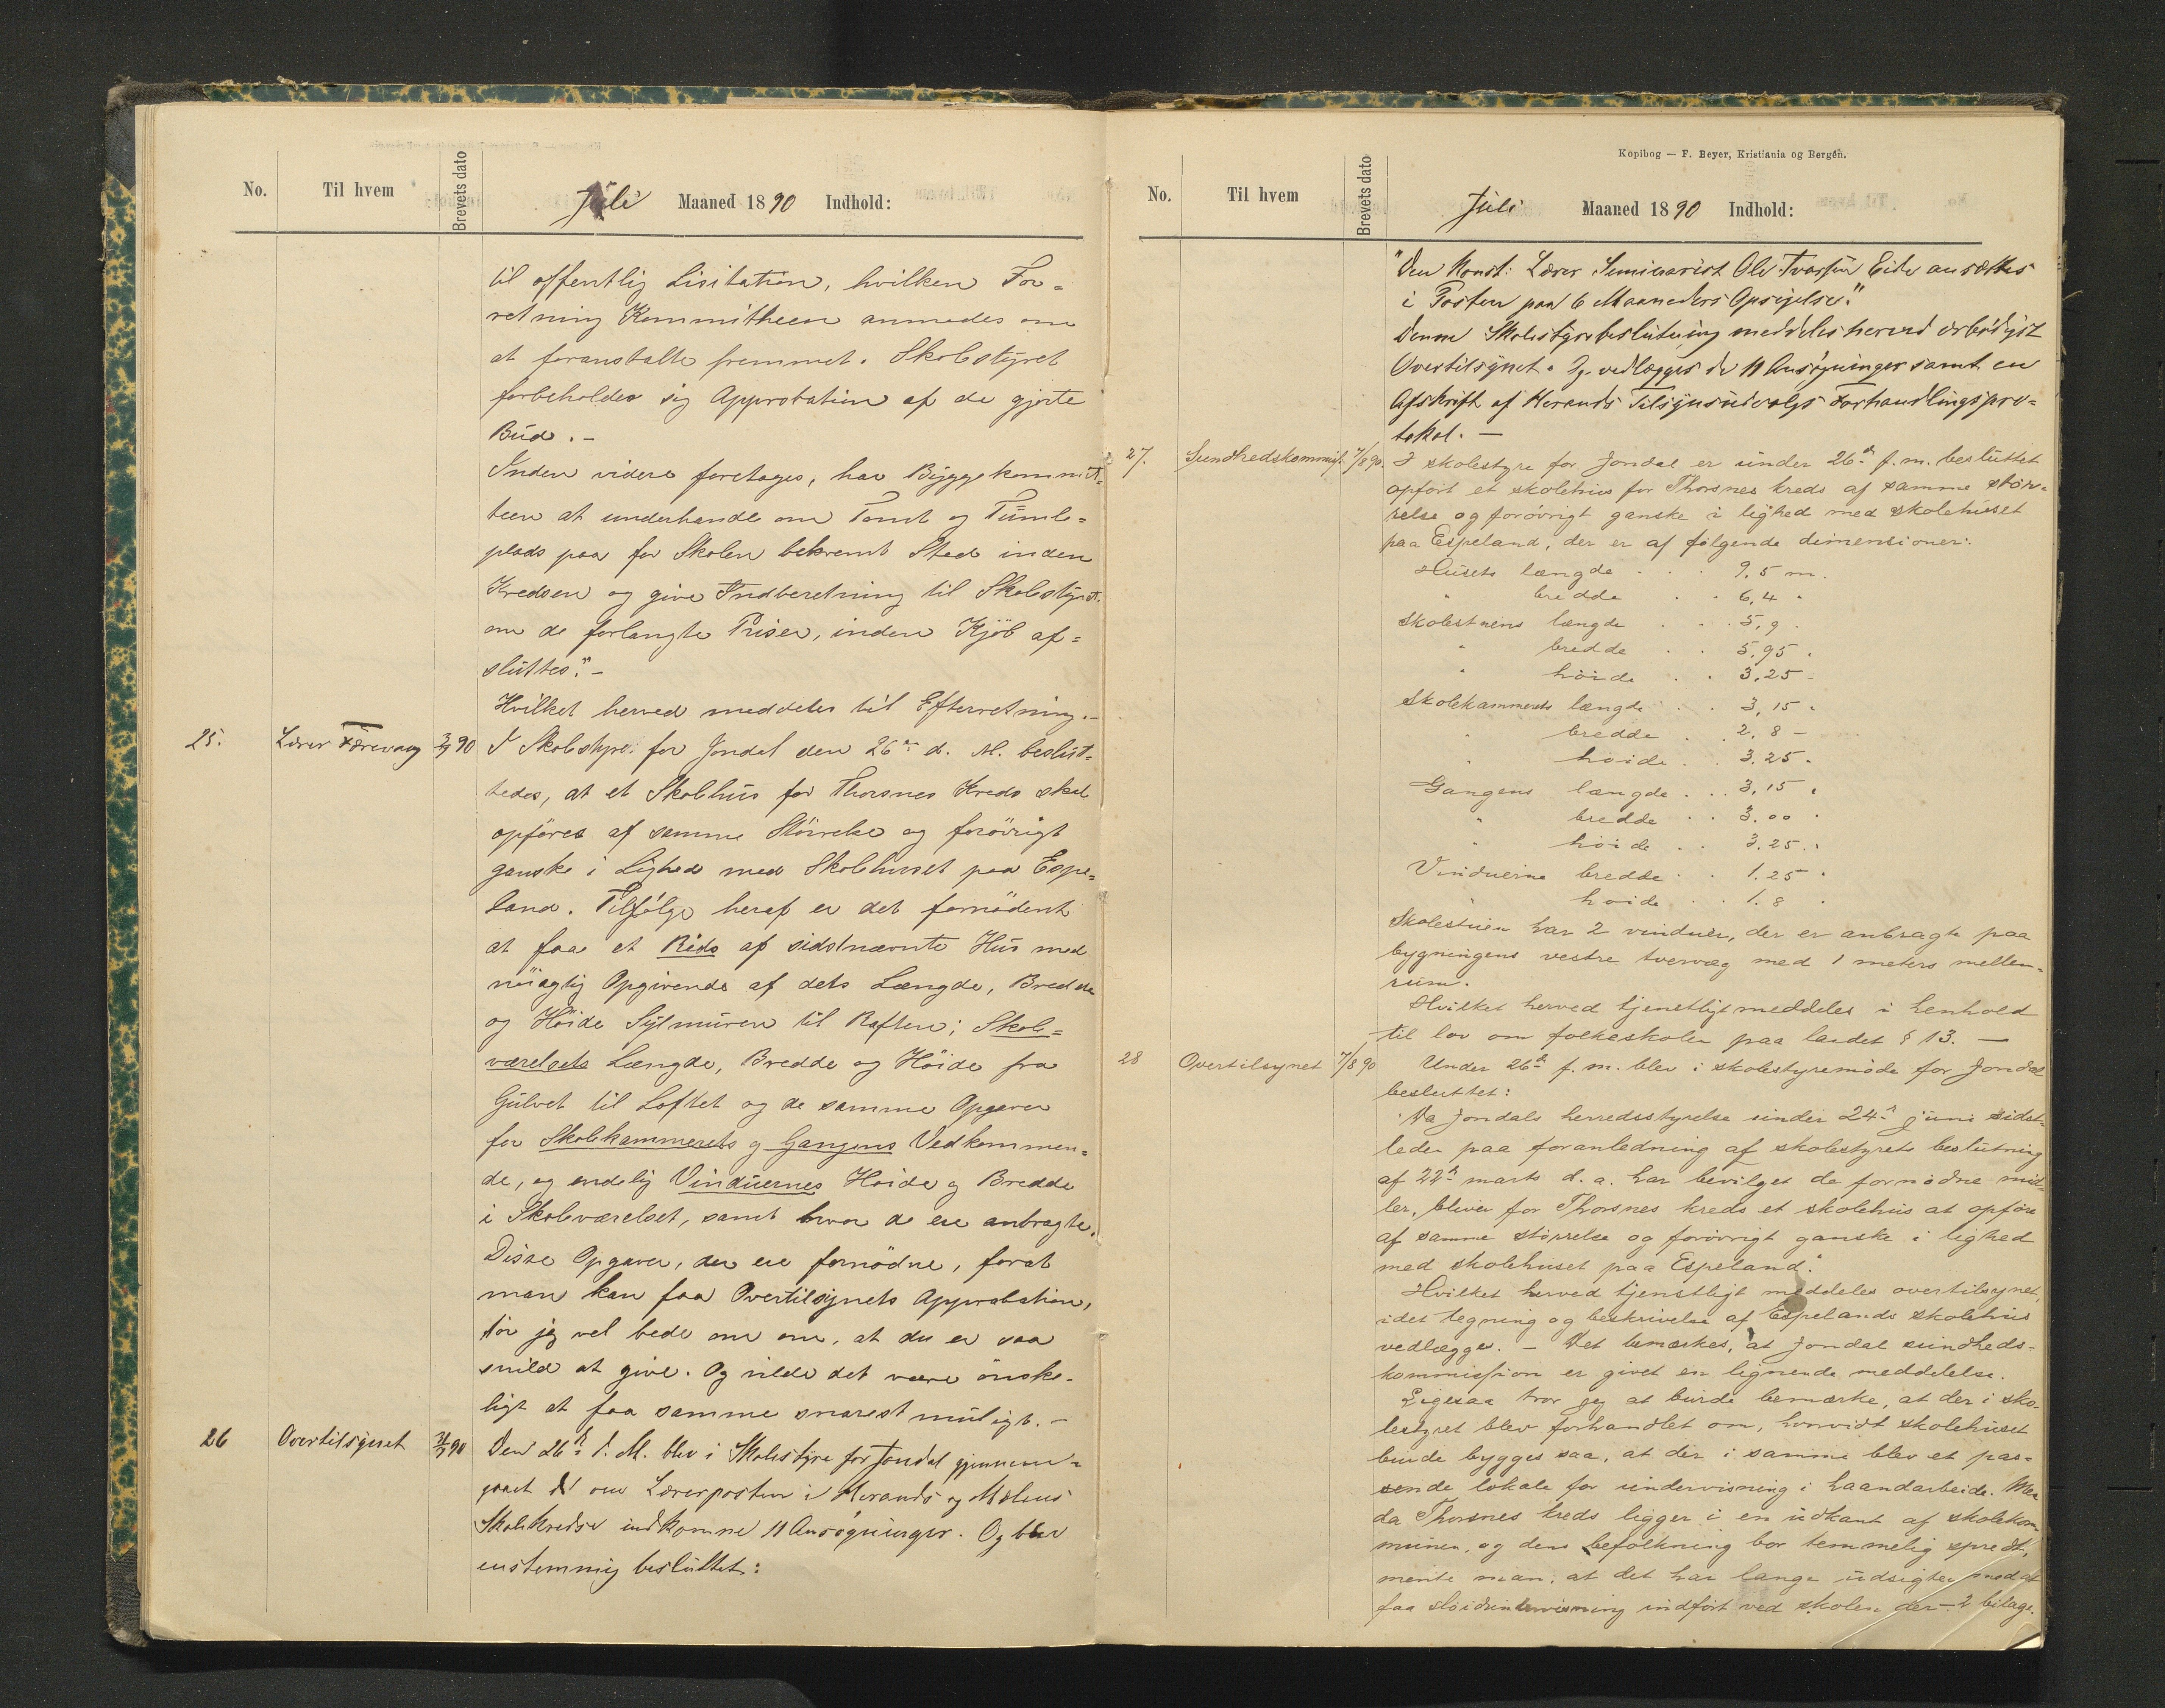 No.
Til hvem
Brevets dato
Juli Maaned 1890 Indhold:
til offentlig Lisitation, hvilken For=
retning Kommitheen anmodes om
at foranstalte fremmet. Skolestyret
forbeholder sig Approbation af de gjorte
Bud. –
Inden videre foretages, har Byggekommit=
teen at underhandle om Tomt og Tumle=
plads paa for Skolen bekvemt Sted inden
Kredsen og give Indberetning til Skolestyret
om de forlangte Priser, inden Kjöb af=
sluttes." –
Hvilket herved meddeles til Efterretning. –
25. Lærer 90 I Skolestyret for Jondal den 26de d. M. beslut=
tedes, at et Skolhus for Thorsnes Kreds skal
opföres af samme Störrelse og forövrigt
ganske i Lighed med Skolehuset paa Espe=
land. Tilfölge heraf er det fornödent
at faa et Rids af sidstnævnte Hus med
nöiagtig Opgivende af dets Længde, Bredde
og Höide Sylmuren til Raften; Skole=
værelsets Længde, Bredde og Höide fra
Gulvet til Loftet og de samme Opgaver
for Skolekammerets og Gangens Vedkommen=
de, og endelig Vinduernes Höide og Bredde
i Skoleværelset, samt hvor de ere anbragte.
Disse Opgaver, der ere fornödne, forat
man kan faa Overtilsynets Approbation,
tör jeg vel bede om om, at du er saa
snild at give. Og vilde det være önske=
ligt at faa samme snarest muligt. –
26 Overtilsynet 31/7 90 Den 26de d. M. blev i Skolestyre for Jondal gjennem=
gaaet de om Lærerposten i Herands og
Skolekredse indkomne 11 Ansøgninger. Og blev
enstemmig besluttet:
Kopibog — F. Beyer, Kristiania og Bergen.
No.
Til hvem
Brevets dato
Juli Maaned 1890 Indhold:
"Den Konst. Lærer Seminarist Ole Eide ansættes
i Posten paa 6 Maaneders Opsigelse."
Denne Skolestyrebeslutning meddeles herved ærbödigst
Overtilsynet. Og vedlægges de 11 Ansøgninger samt en
Afskrift af Herands Tilsynsudvalgs Forhandlingspro=
tokol. —
27. Sundhedskommis. 7/8 90. I skolestyre for Jondal er under 26de f. m. besluttet
opført et skolehus for Thorsnes kreds af samme stør=
relse og forøvrigt ganske i lighed med skolehuset
paa Espeland, der er af følgende dimensioner:
Husets længde . . . 9,5 m.
" bredde . . 6,4 "
Skolestuens længde . . . 5,9 "
" bredde . . 5,95 "
" høide . . 3,25 "
Skolekammerets længde . . 3,15 "
" bredde . . 2,8 "
" høide . . 3.25 "
Gangens længde . . . 3,15 "
" bredde . . 3.00 "
" høide . . 3.25 "
Vinduerne bredde . . 1.25 "
" høide . . 1.8 "
Skolestuen har 2 vinduer, der er anbragte paa
bygningens vestre tvervæg med 1 meters mellem=
rum.
Hvilket herved tjenstligt meddeles i henhold
til lov om folkeskolen paa landet § 13. —
28 Overtilsynet 7/8 90 Under 26de f. m. blev i skolestyremøde for Jondal
besluttet:
"Da Jondals herredsstyrelse under 24de juni sidst=
leden paa foranledning af skolestyrets beslutning
af 22de marts d. a. har bevilget de fornødne mid=
ler, bliver for Thorsnes kreds et skolehus at opføre
af samme størrelse og forøvrigt ganske i lighed
med skolehuset paa Espeland".
Hvilket herved tjenstligt meddeles overtilsynet,
idet tegning og beskrivelse af Espelands skolehus
vedlægges. – Det bemærkes, at Jondal sundheds=
kommission er givet en lignende meddelelse.
Ligesaa tror jeg at burde bemærke, at der i sko=
lestyret blev forhandlet om, hvorvidt skolehuset
burde bygges saa, at der i samme blev et pas=
sende lokale for undervisning i haandarbeide. Men
da Thorsnes kreds ligger i en udkant af skolekom=
munen, og dens befolkning bor temmelig spredt,
mente man, at det har lange udsigter med at
faa sløidundervisning indført ved skolen der – 2 bilage.